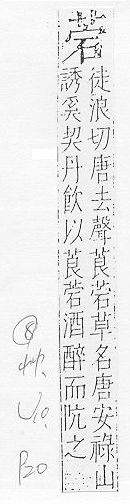 菪
徒浪切唐去聲莨菪草名唐安祿山
誘奚契丹飲以莨菪酒醉而阬之